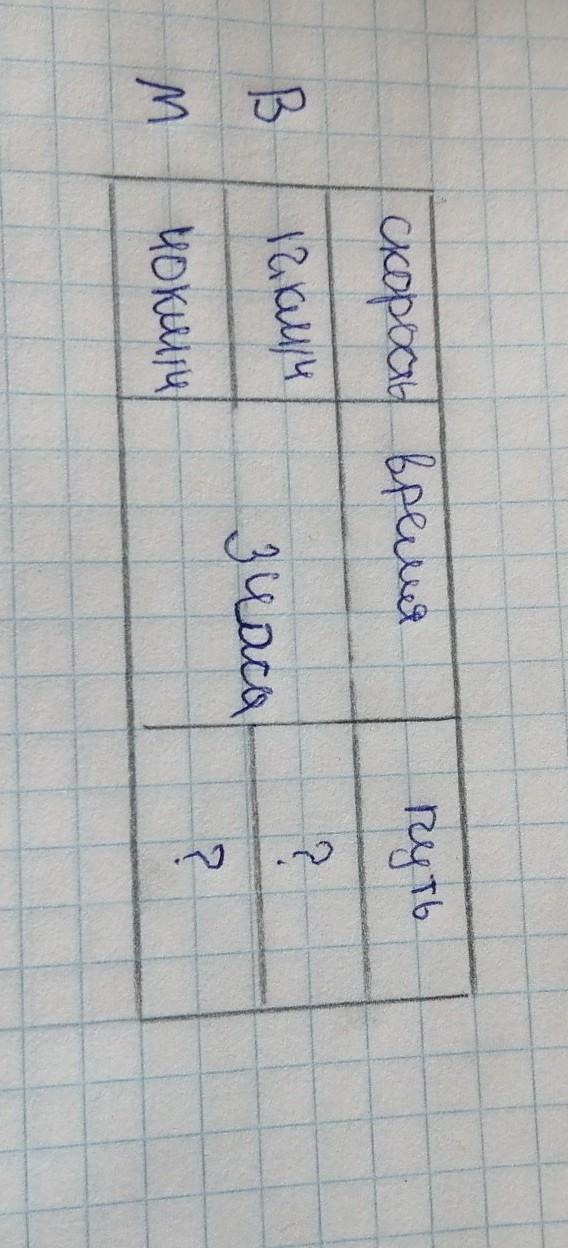 скорость время путь
В 12км/ч ?
3 часа
М 40км/ч ?